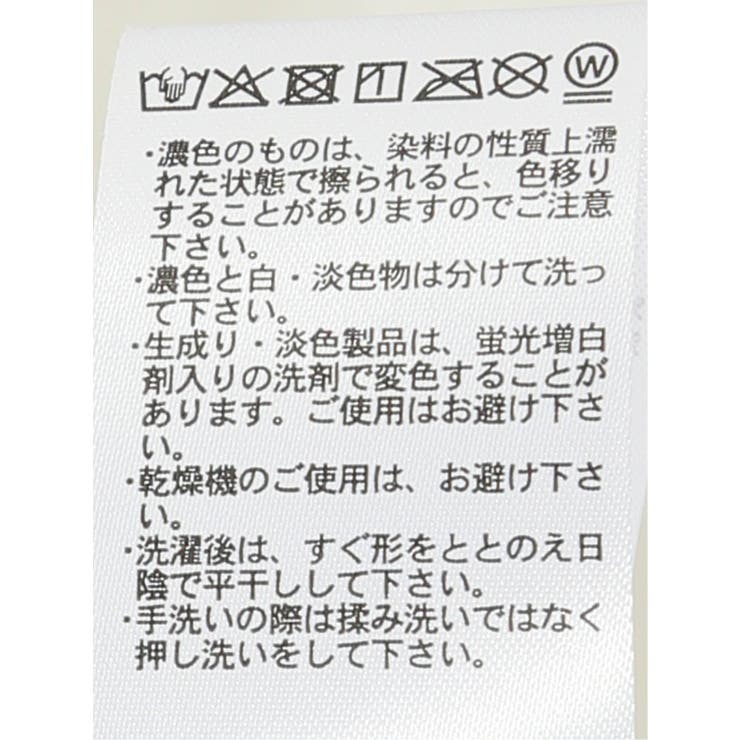 W
・濃色のものは、染料の性質上濡
れた状態で擦られると、色移り
することがありますのでご注意
下さい。
・濃色と白・淡色物は分けて洗っ
て下さい。
・生成り・淡色製品は、蛍光増白
剤入りの洗剤で変色することが
あります。ご使用はお避け下さ
い。
・乾燥機のご使用は、お避け下さ
い。
・洗濯後は、すぐ形をととのえ日
陰で平干しして下さい。
・手洗いの際は揉み洗いではなく
押し洗いをして下さい。